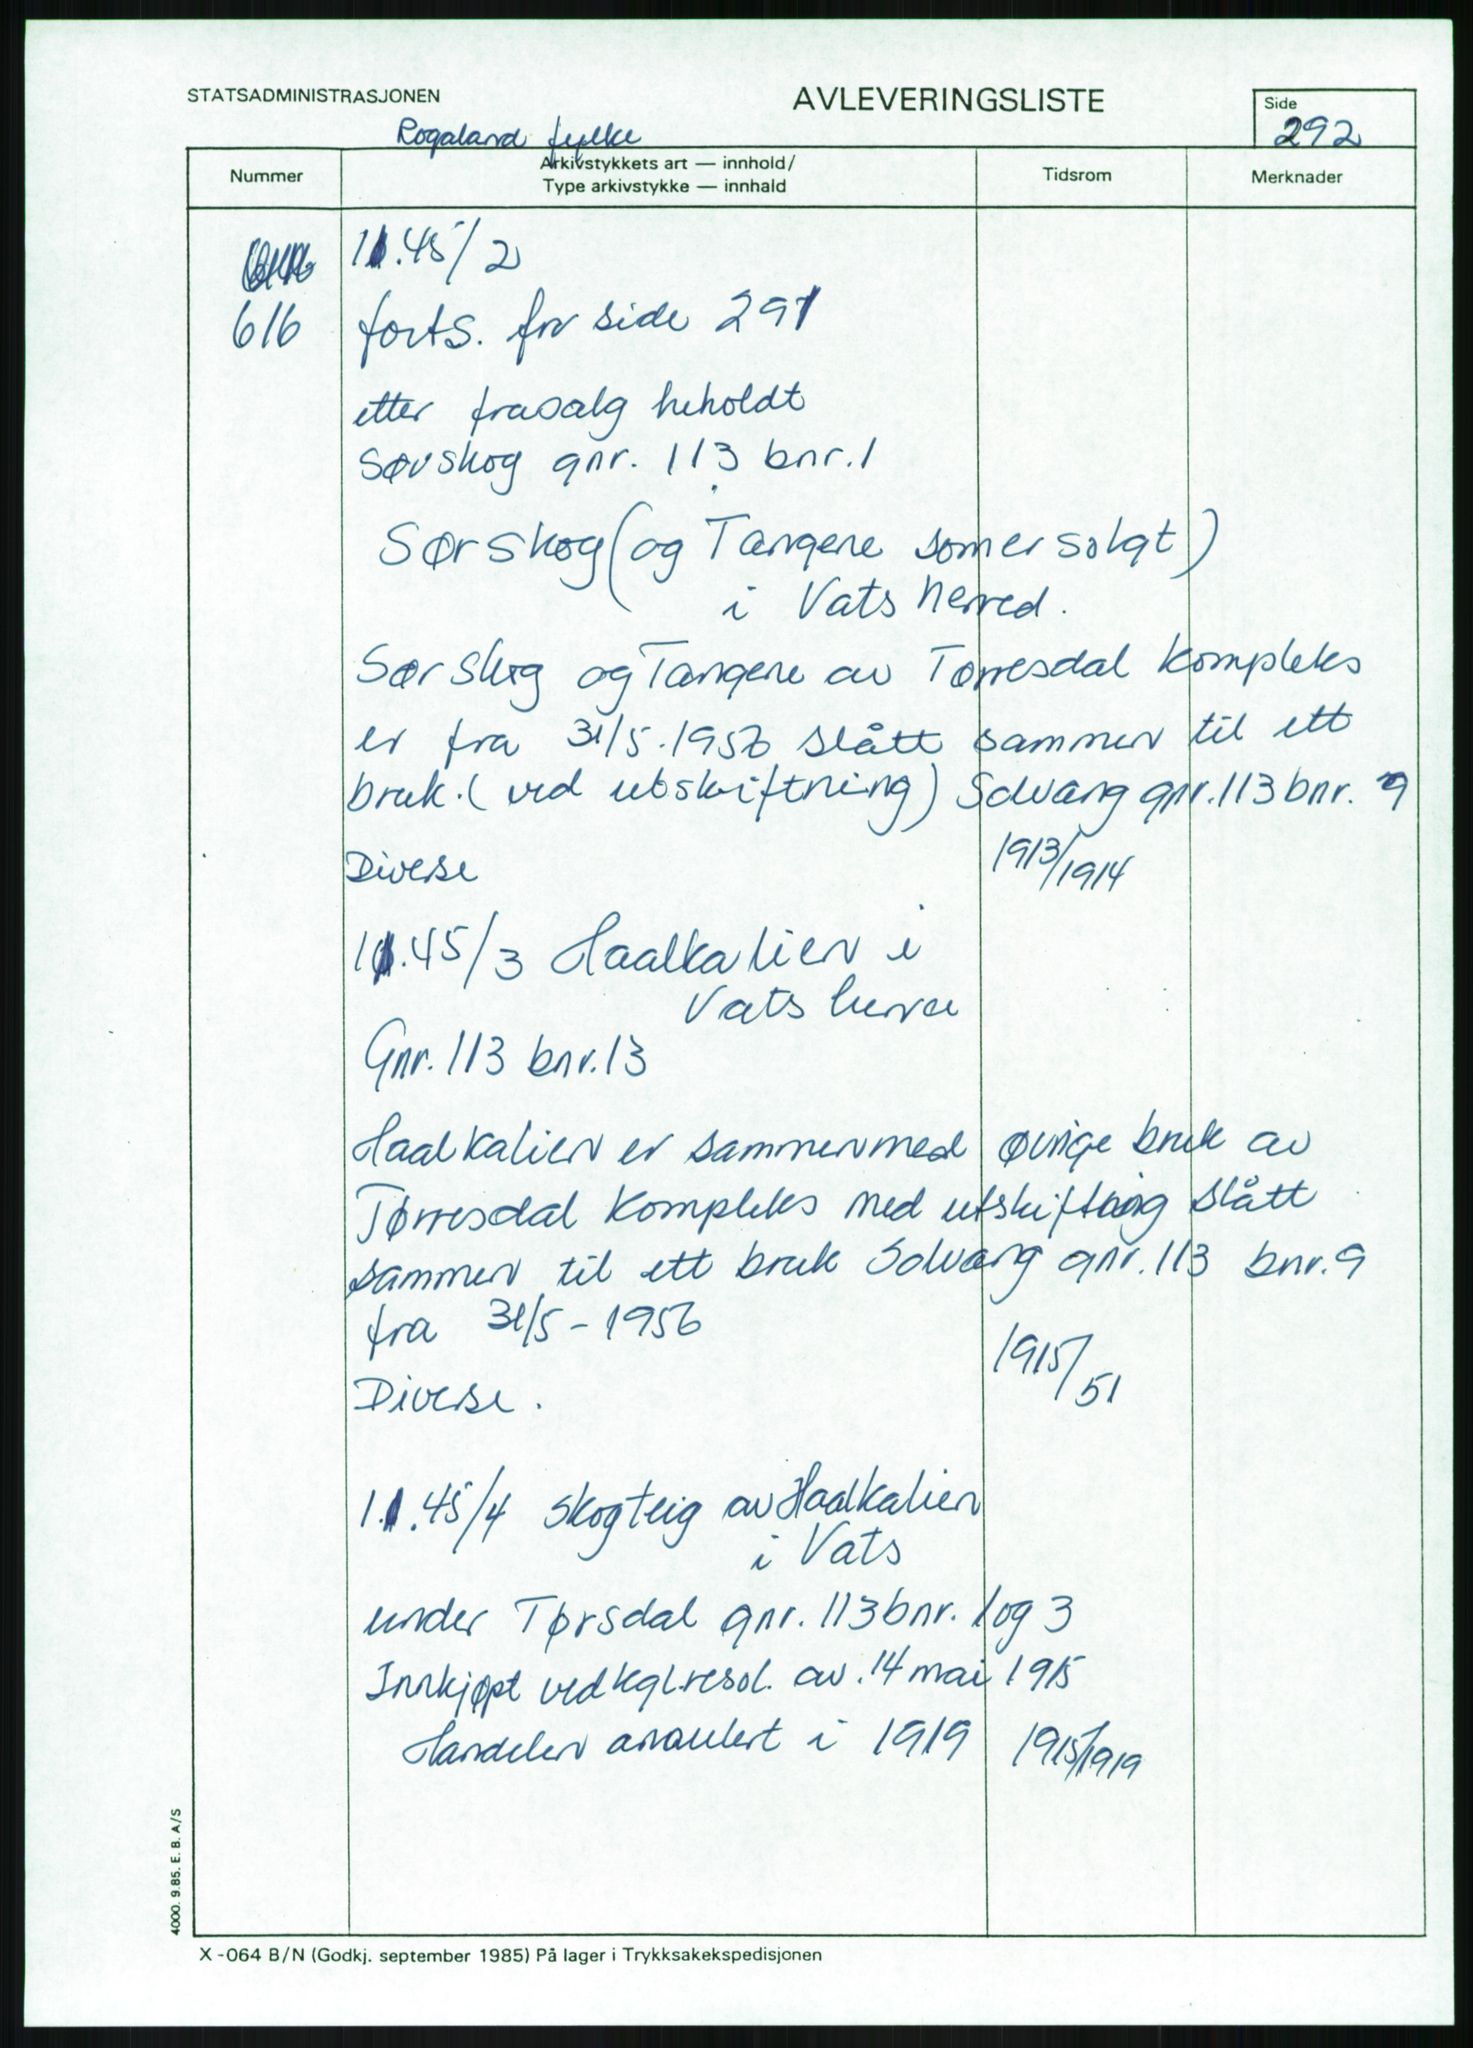 STATSADMINISTRASJONEN
AVLEVERINGSLISTE
Side
292
Rogaland fylke
Nummer
Arkivstykkets art — innhold/
Type arkivstykke — innhald
Tidsrom
Merknader
11.45/2
616 forts. fra side 291
etter frasalg beholdt
Sørskog gnr. 113 bnr. 1
Sørskog (og Tangene som er solgt)
i Vats herred.
Sørskog og Tangene av Tørresdal kompleks
er fra 31/5.1956 slått sammen til ett
bruk. (ved utskiftning) Solvang gnr. 113 bnr. 9
Diverse 1913/1914
11.45/3 Haalkalien i
Vats herred
Gnr. 113 bnr. 13
Haalkalien er sammen med øvrige bruk av
Tørresdal kompleks med utskiftning slått
sammen til ett bruk Solvang gnr. 113 bnr. 9
fra 31/5 - 1956
Diverse. 1915/51
11.45/4 Skogteig av Haalkalien
i Vats
under Tørsdal gnr. 113 bnr. 1 og 3
Innkjøpt ved kgl. resol. av. 14 mai 1915
Handelen annulert i 1919 1915/1919
4000. 9.85. E. B. A/S
X-064 B/N (Godkj. september 1985) På lager i Trykksakekspedisjonen